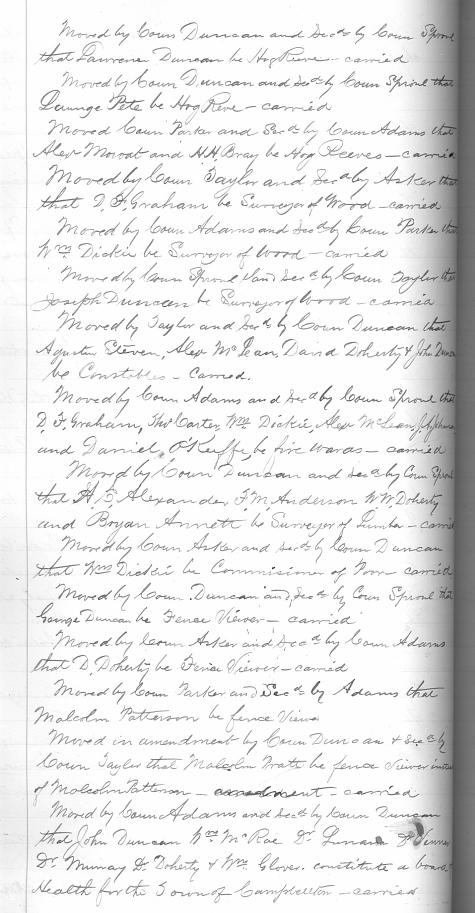 Moved by Coun Duncan and Secd by Coun Sproul
that Lawrence Duncan be Hog Reeve - carried
Moved by Coun Duncan and Secd by Coun Sproul that
Pete be Hog Reve - carried
Moved Coun Parker and Secd by Coun Adams that
Alex Mowat and H.H. Bray be Hog Reeves - carried
Moved by Coun Taylor and Secd by Asker that
that D. F. Graham be Surveyor of Wood - carried
Moved by Coun Adams and Secd by Coun Parker that
Wm Dickie be Surveyor of Wood - carried
Moved by Coun Sproul and Secd by Coun Taylor that
Joseph Duncan be Surveyor of Wood - carried
Moved by Taylor and Secd by Coun Duncan that
Agustus Steven, Alex McLean, David Doherty & John Duncan
be Constables - Carried.
Moved by Coun Adams and Secd by Coun Sproul that
D. F. Graham, Thos Carter, Wm Dickie, Alex McLean,
and Daniel O'Keiffe be fire wards - carried
Moved by Coun Duncan and Secd by Coun Sproul
that A. E. Alexander, F. M. Anderson W. W. Doherty
and Bryan Annett be Surveyor of Lumber - carried
Moved by Coun Asker and Secd by Coun Duncan
that Wm Dickie be Commissioner of Poor - carried
Moved by Coun. Duncan and Secd by Coun Sproul that
George Duncan be Fence Viewer - carried
Moved by Coun Asker and Secd by Coun Adams
that D. Doherty be Fence Viewer - carried
Moved by Coun Parker and Secd by Adams that
Malcolm Patterson be fence Viewer
Moved in amendment by Coun Duncan & Secd by
Coun Taylor that Malcolm be fence Viewer instead
of Malcolm Patterson - amendment - carried
Moved by Coun Adams and Secd by Coun Duncan
that John Duncan Wm McRae Dr. Lunam Dr
Dr. Murray Dr. Doherty & Wm Glover. constitute a board
Health for the Town of Campbellton - carried